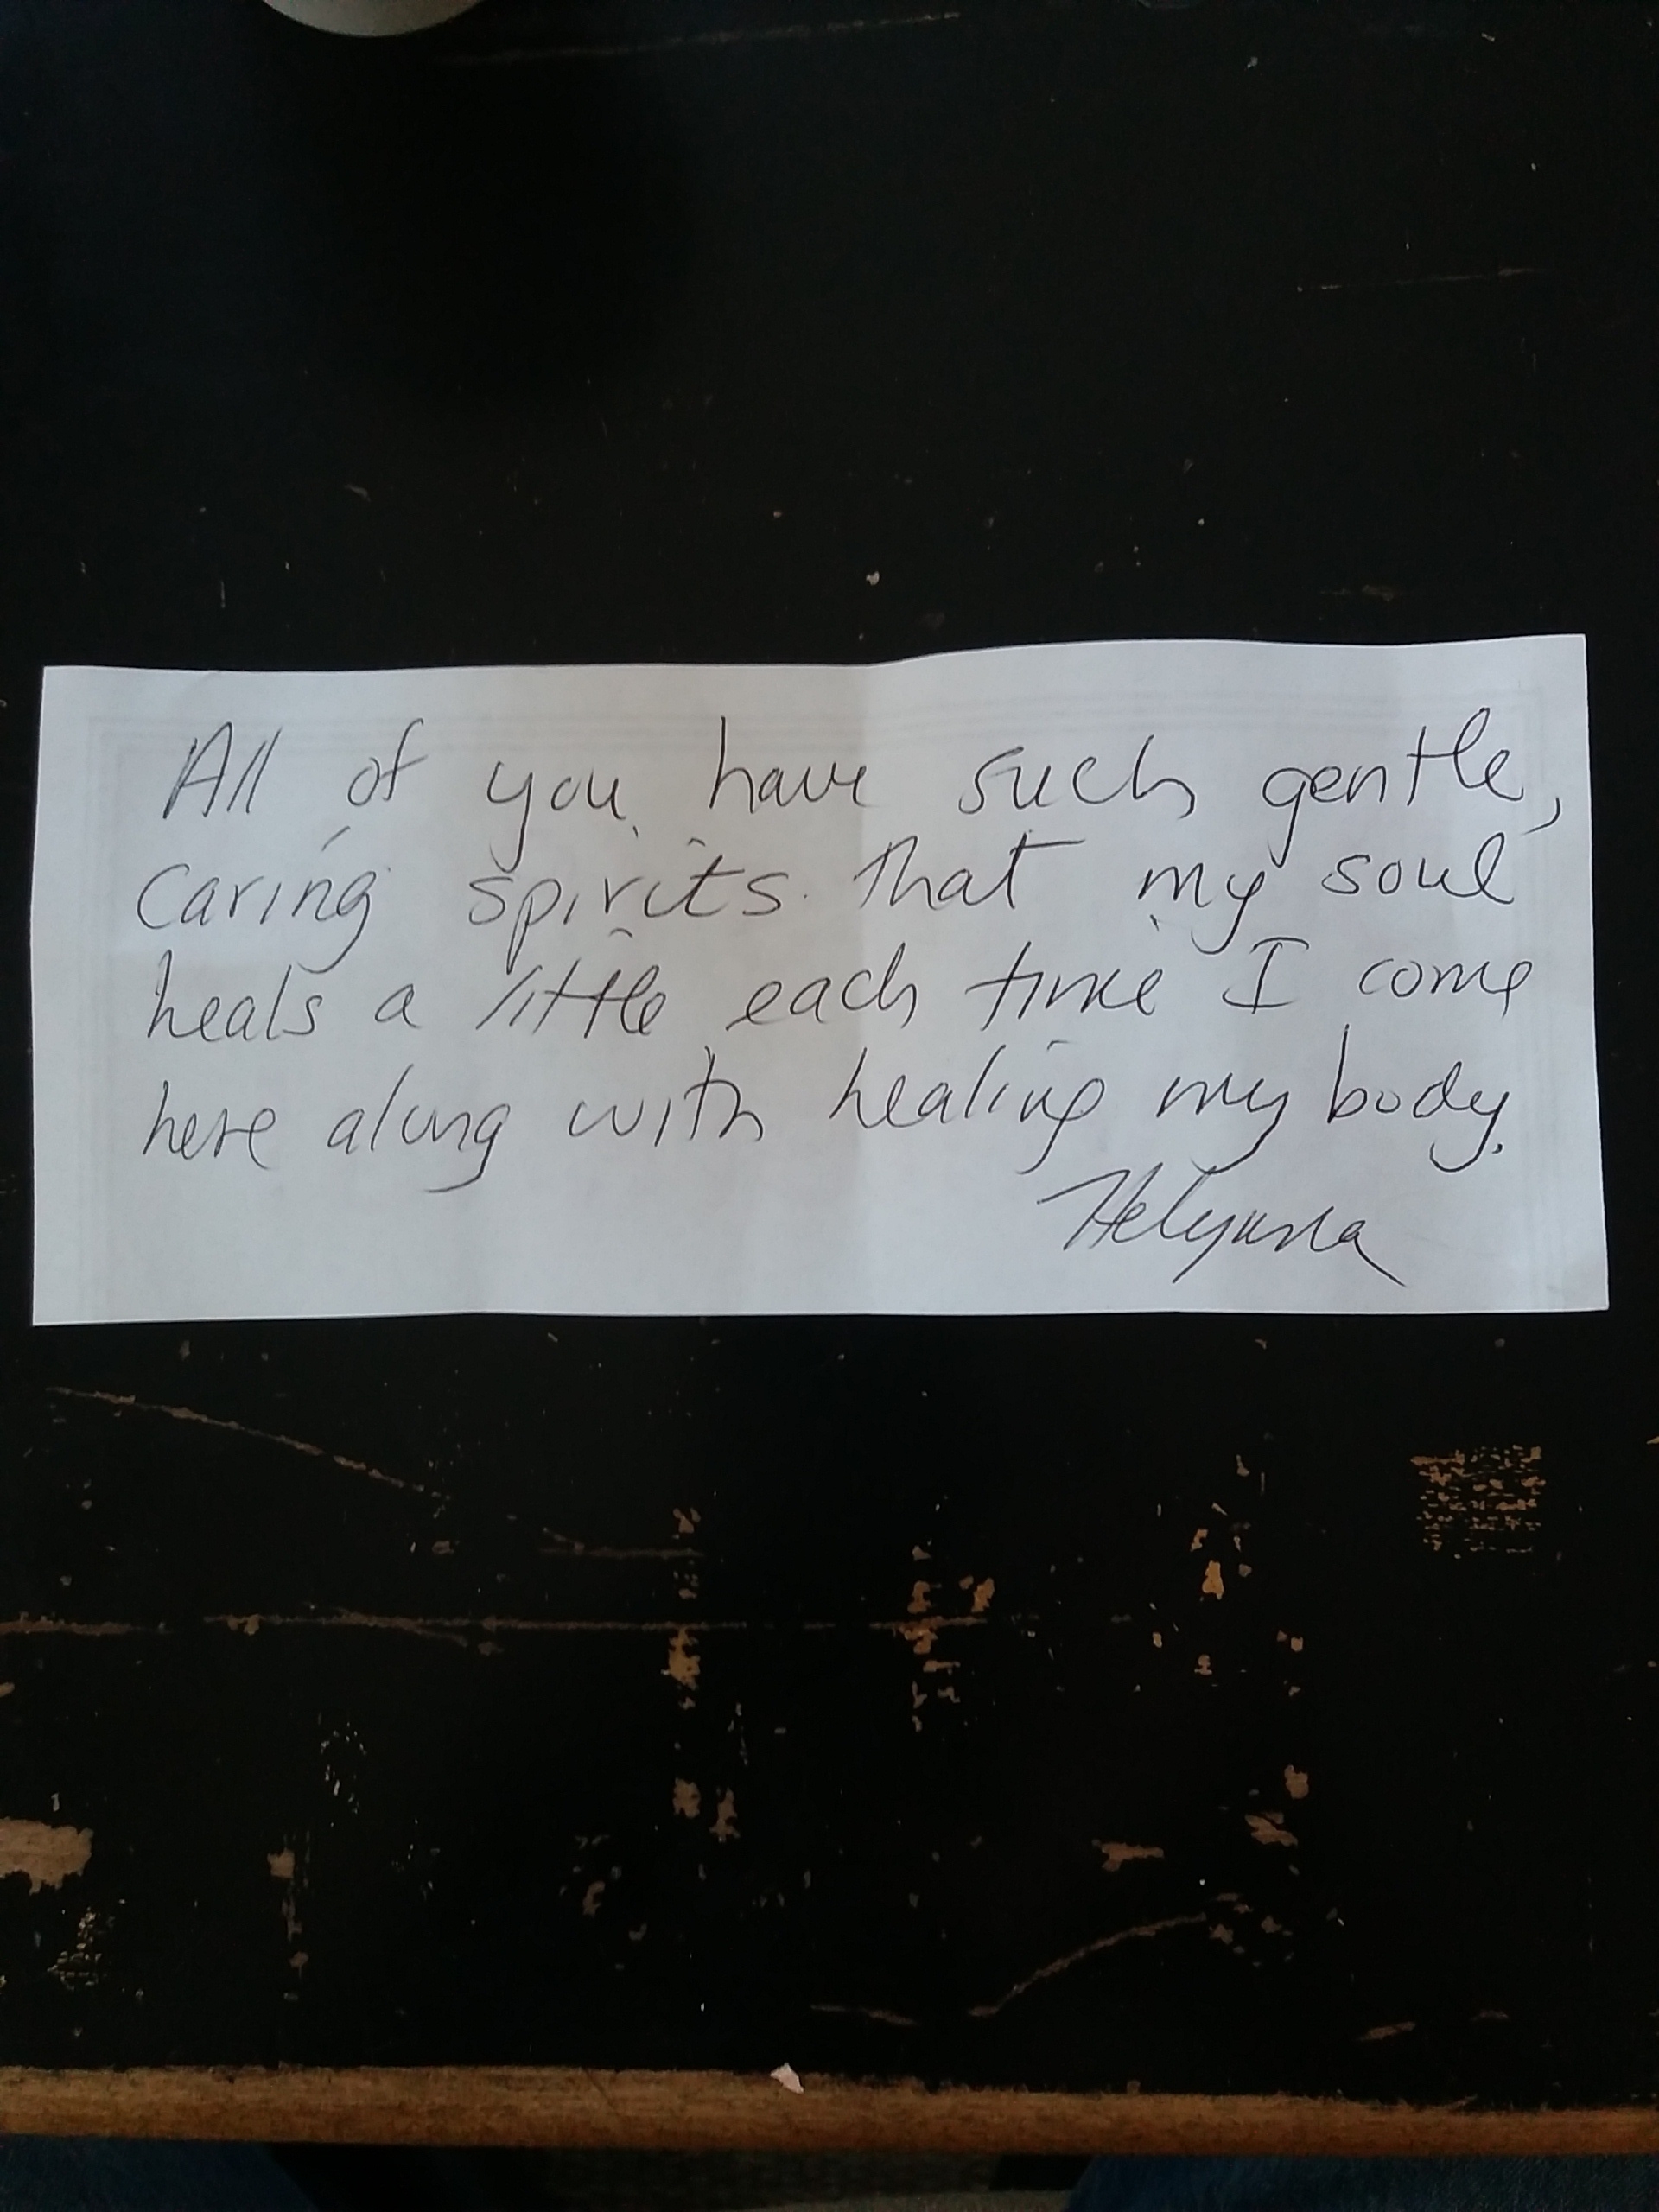 All of you have such gentle,
caring spirits that my soul
heals a little each time I come
here along with healing my body.
Helyana